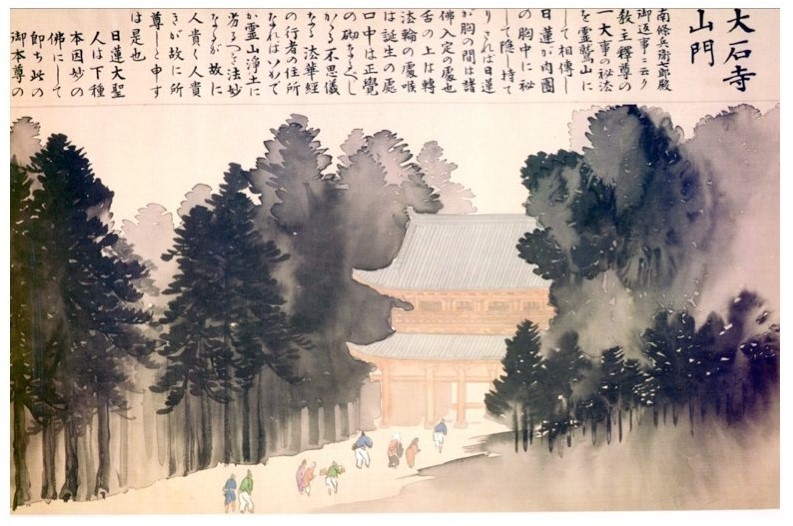 大石寺
山門
南條兵衛七郎殿
御返事ニ云ク
教主釋尊の
一大事の秘法
を霊鷲山に
して相傳し
日蓮が肉團
の胸中に秘
して隠し持て
りされば日蓮
が胸の間は諸
佛入定の處也
舌の上は轉
法輪の處喉
は誕生の處
口中は正覺
の砌なるべし
かゝる不思儀
なる法華經
の行者の住所
なればいかで
か霊山浄土に
劣るべき法妙
なるが故に
人貴く人貴
きが故に所
尊しと申す
は是也
日蓮大聖
人は下種
本因妙の
佛にして
即ち此の
御本尊の